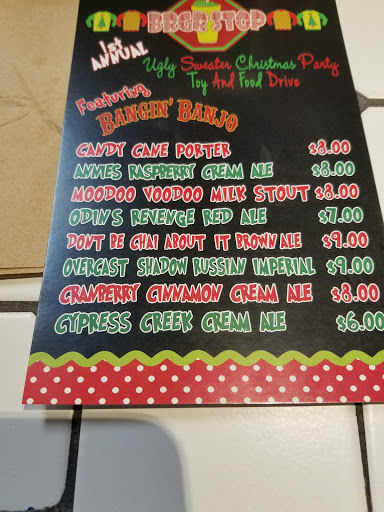 BRGR STOP
1st ANNUAL
Ugly Sweater Christmas Party
Toy And Food Drive
Featuring
BANGIN' BANJO
CANDY CANE PORTER $8.00
ANNIES RASPBERRY CREAM ALE $8.00
MOODOO VOODOO MILK STOUT $8.00
ODIN'S REVENGE RED ALE $7.00
DONT BE CHAI ABOUT IT BROWN ALE $9.00
OVERCAST SHADOW RUSSIAN IMPERIAL $9.00
CRANBERRY CINNAMON CREAM ALE $8.00
CYPRESS CREEK CREAM ALE $6.00